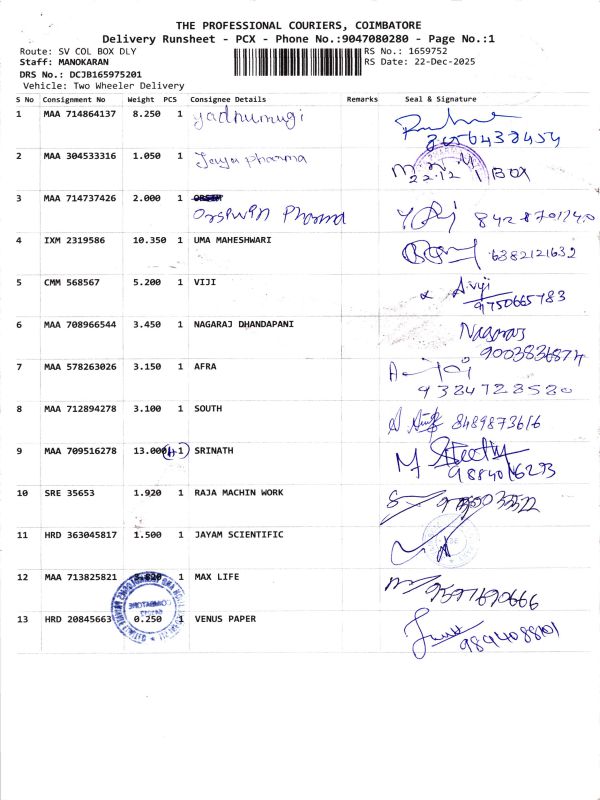 THE PROFESSIONAL COURIERS, COIMBATORE
Delivery Runsheet - PCX - Phone No.:9047080280 - Page No.:1
Route: SV COL BOX DLY RS No.: 1659752
Staff: MANOKARAN RS Date: 22-Dec-2025
DRS No.: DCJB165975201
Vehicle: Two Wheeler Delivery
S No Consignment No Weight PCS Consignee Details Remarks Seal & Signature
1 MAA 714864137 8.250 1 yadhumugi
2 MAA 304533316 1.050 1 Jaya pharma
22.12 1 BOX
3 MAA 714737426 2.000 1
Orsewin Pharma
4 IXM 2319586 10.350 1 UMA MAHESHWARI 6382121632
5 CMM 568567 5.200 1 VIJI
9750665783
6 MAA 708966544 3.450 1 NAGARAJ DHANDAPANI Nagaraj
9003836874
7 MAA 578263026 3.150 1 AFRA
9384728580
8 MAA 712894278 3.100 1 SOUTH 8489873616
9 MAA 709516278 13.000 1 SRINATH
9884016293
10 SRE 35653 1.920 1 RAJA MACHIN WORK
11 HRD 363045817 1.500 1 JAYAM SCIENTIFIC
12 MAA 713825821 1 MAX LIFE
13 HRD 20845663 0.250 1 VENUS PAPER
9894088101